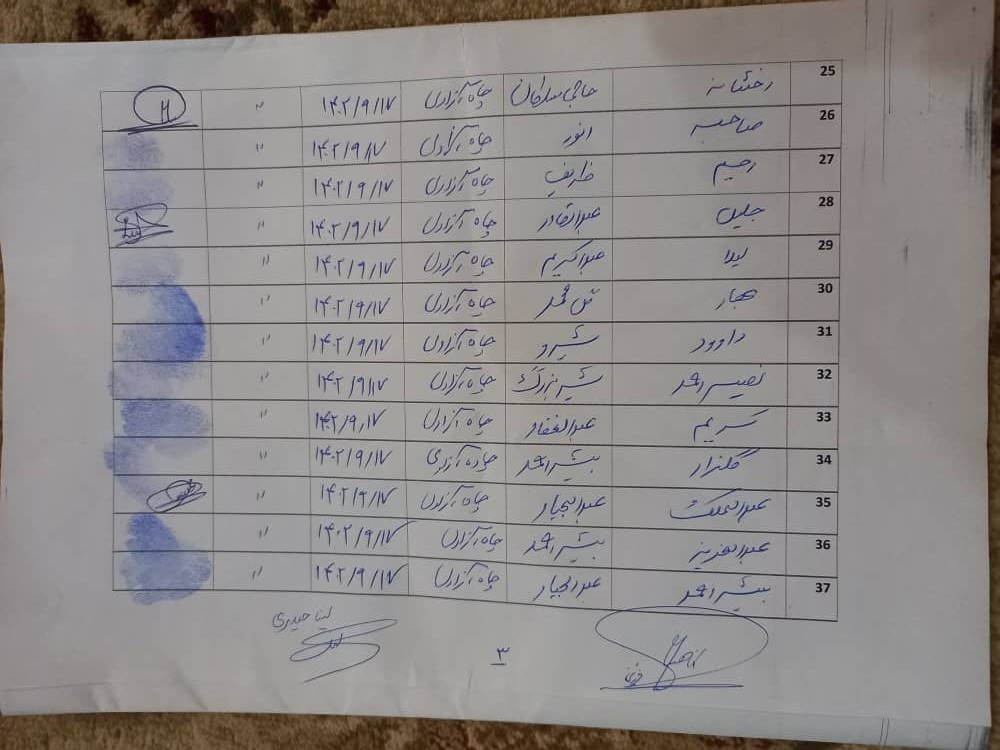 25 رخشانه حاجی سلطان چاه آزادی ۱۴۰۲/۹/۱۷ "
26 صاحبه انور چاه آزادی ۱۴۰۲/۹/۱۷ "
27 رحیم ظریف چاه آزادی ۱۴۰۲/۹/۱۷ "
28 جلیل عبدالقادر چاه آزادی ۱۴۰۲/۹/۱۷ "
29 لیلا عبدالکریم چاه آزادی ۱۴۰۲/۹/۱۷ "
30 بهار چاه آزادی ۱۴۰۲/۹/۱۷ "
31 داوود شیرو چاه آزادی ۱۴۰۲/۹/۱۷ "
32 نصیر احمد شیر بزرگ چاه آزادی ۱۴۰۲/۹/۱۷ "
33 کریم عبدالغفار چاه آزادی ۱۴۰۲/۹/۱۷ "
34 گلنزار بشیر احمد چاه آزادی ۱۴۰۲/۹/۱۷ "
35 عبدالملک عبدالجبار چاه آزادی ۱۴۰۲/۹/۱۷ "
36 عبدالعزیز بشیر احمد چاه آزادی ۱۴۰۲/۹/۱۷ "
37 بشیر احمد عبدالجبار چاه آزادی ۱۴۰۲/۹/۱۷ "
لینا حیدری
۳